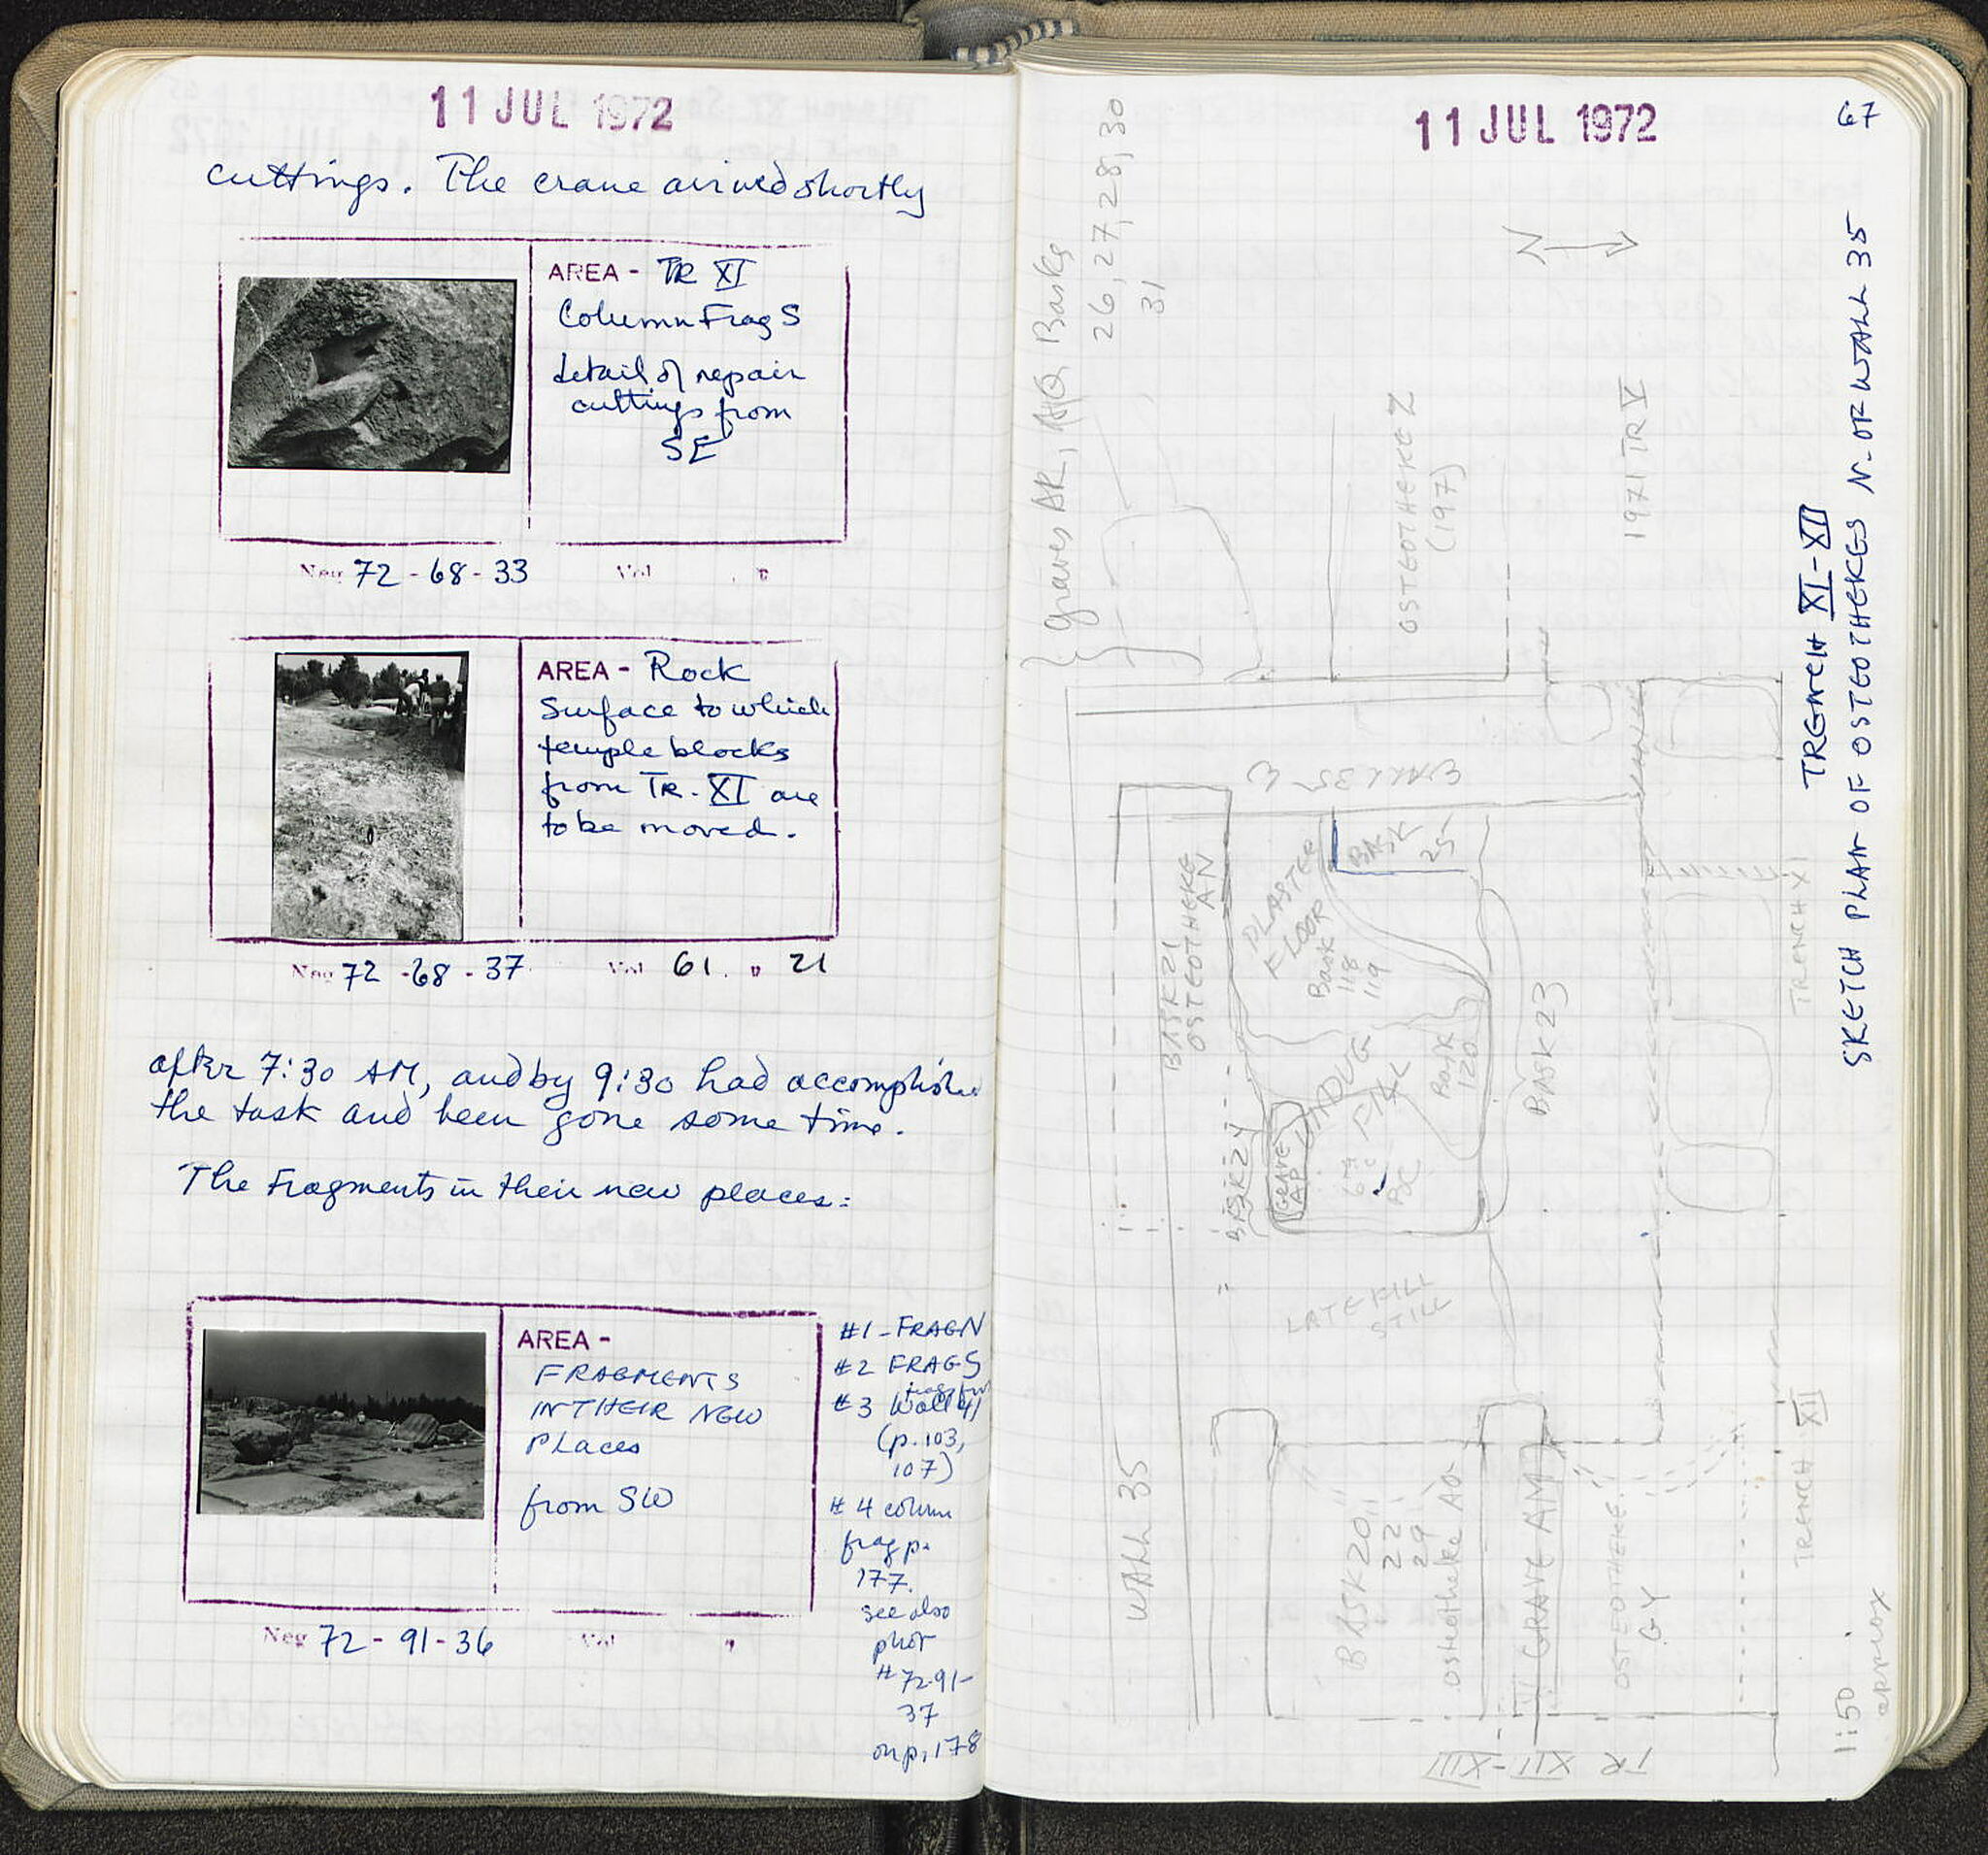 11 JUL 1972
cuttings. The crane arrived shortly
AREA - TR XI
Column Frag S
detail of repair
cuttings from
SE
Neg 72-68-33 Vol p
AREA - Rock
Surface to which
temple blocks
from TR. XI are
to be moved.
Neg 72-68-37 Vol 61. p 21
after 7:30 AM, and by 9:30 had accomplished
the task and been gone some time.
The Fragments in their new places:
AREA -
FRAGMENTS
IN THEIR NEW
PLACES
from SW
Neg 72-91-36 Vol p
#1 - FRAG N
#2 FRAG S
#3 Wall 41
(p. 103,
107)
#4 column
frag p.
177.
see also
phot
#72-91-
37
on p. 178
11 JUL 1972
67
TRENCH XI-XII
SKETCH PLAN OF OSTEOTHEKES N. OF WALL 35
N
graves AR, AQ, Basks
26, 27, 28, 30
31
OSTEOTHEKE Z
(197)
1971 TR V
WALL 35 E
BASK 21
OSTEOTHEKE
AN
PLASTER
FLOOR
Bask
118
119
BASK
25
Bask
120
BASK 23
TRENCH XI
BASK 24
GRAVE
AP
UNDUG
FILL
6th c
BC
LATE FILL
STILL
WALL 35
BASK 20,
22
29
Osteotheke AO
GRAVE AM
OSTEOTHEKE
GY
TRENCH XII
TR XII-XIII
1:50
approx